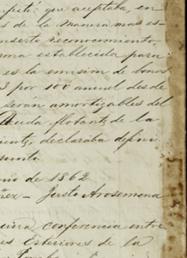 petó que aceptaba, en
s de la manera mas es-
nserto reconocimiento
rma establecida para
es la emision de bonos
3 por 100 anual desde
seran amortizables del
deuda flotante de la
declaraba defini-
sunto
nio de 1862
Justo Arosemena
conferencia entre
es Esteriores de la